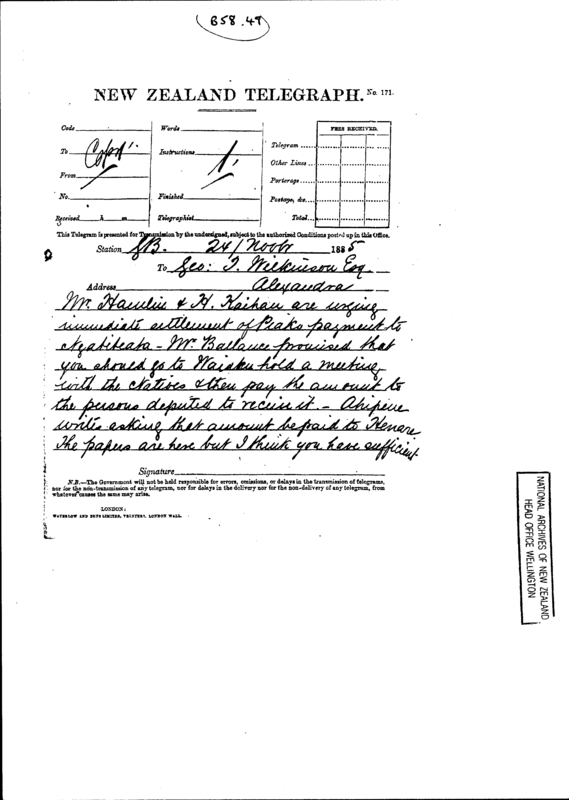 B58.49
NEW ZEALAND TELEGRAPH. No. 171.
Code
To
From
No.
Received h m
Words
Instructions
Finished
Telegraphist
FEES RECEIVED.
Telegram
Other Lines
Porterage
Postage, &c.
Total
This Telegram is presented for Transmission by the undersigned, subject to the authorized Conditions posted up in this Office.
Station 24/Novbr 1885
To Geo: T. Wilkinson Esq
Address Alexandra
Mr. Hamlin & H. Kaihau are urging
immediate settlement of Piako payment to
Ngatiteata - Mr. Ballance promised that
you should go to Waiuku hold a meeting
with the Natives & then pay the amount to
the persons deputed to receive it. - Ahipene
writes asking that amount be paid to Henare
The papers are here but I think you have sufficient
Signature
N.B.—The Government will not be held responsible for errors, omissions, or delays in the transmission of telegrams,
nor for the non-transmission of any telegram, nor for delays in the delivery nor for the non-delivery of any telegram, from
whatever causes the same may arise.
LONDON:
WATERLOW AND SONS LIMITED, PRINTERS, LONDON WALL.
NATIONAL ARCHIVES OF NEW ZEALAND
HEAD OFFICE WELLINGTON